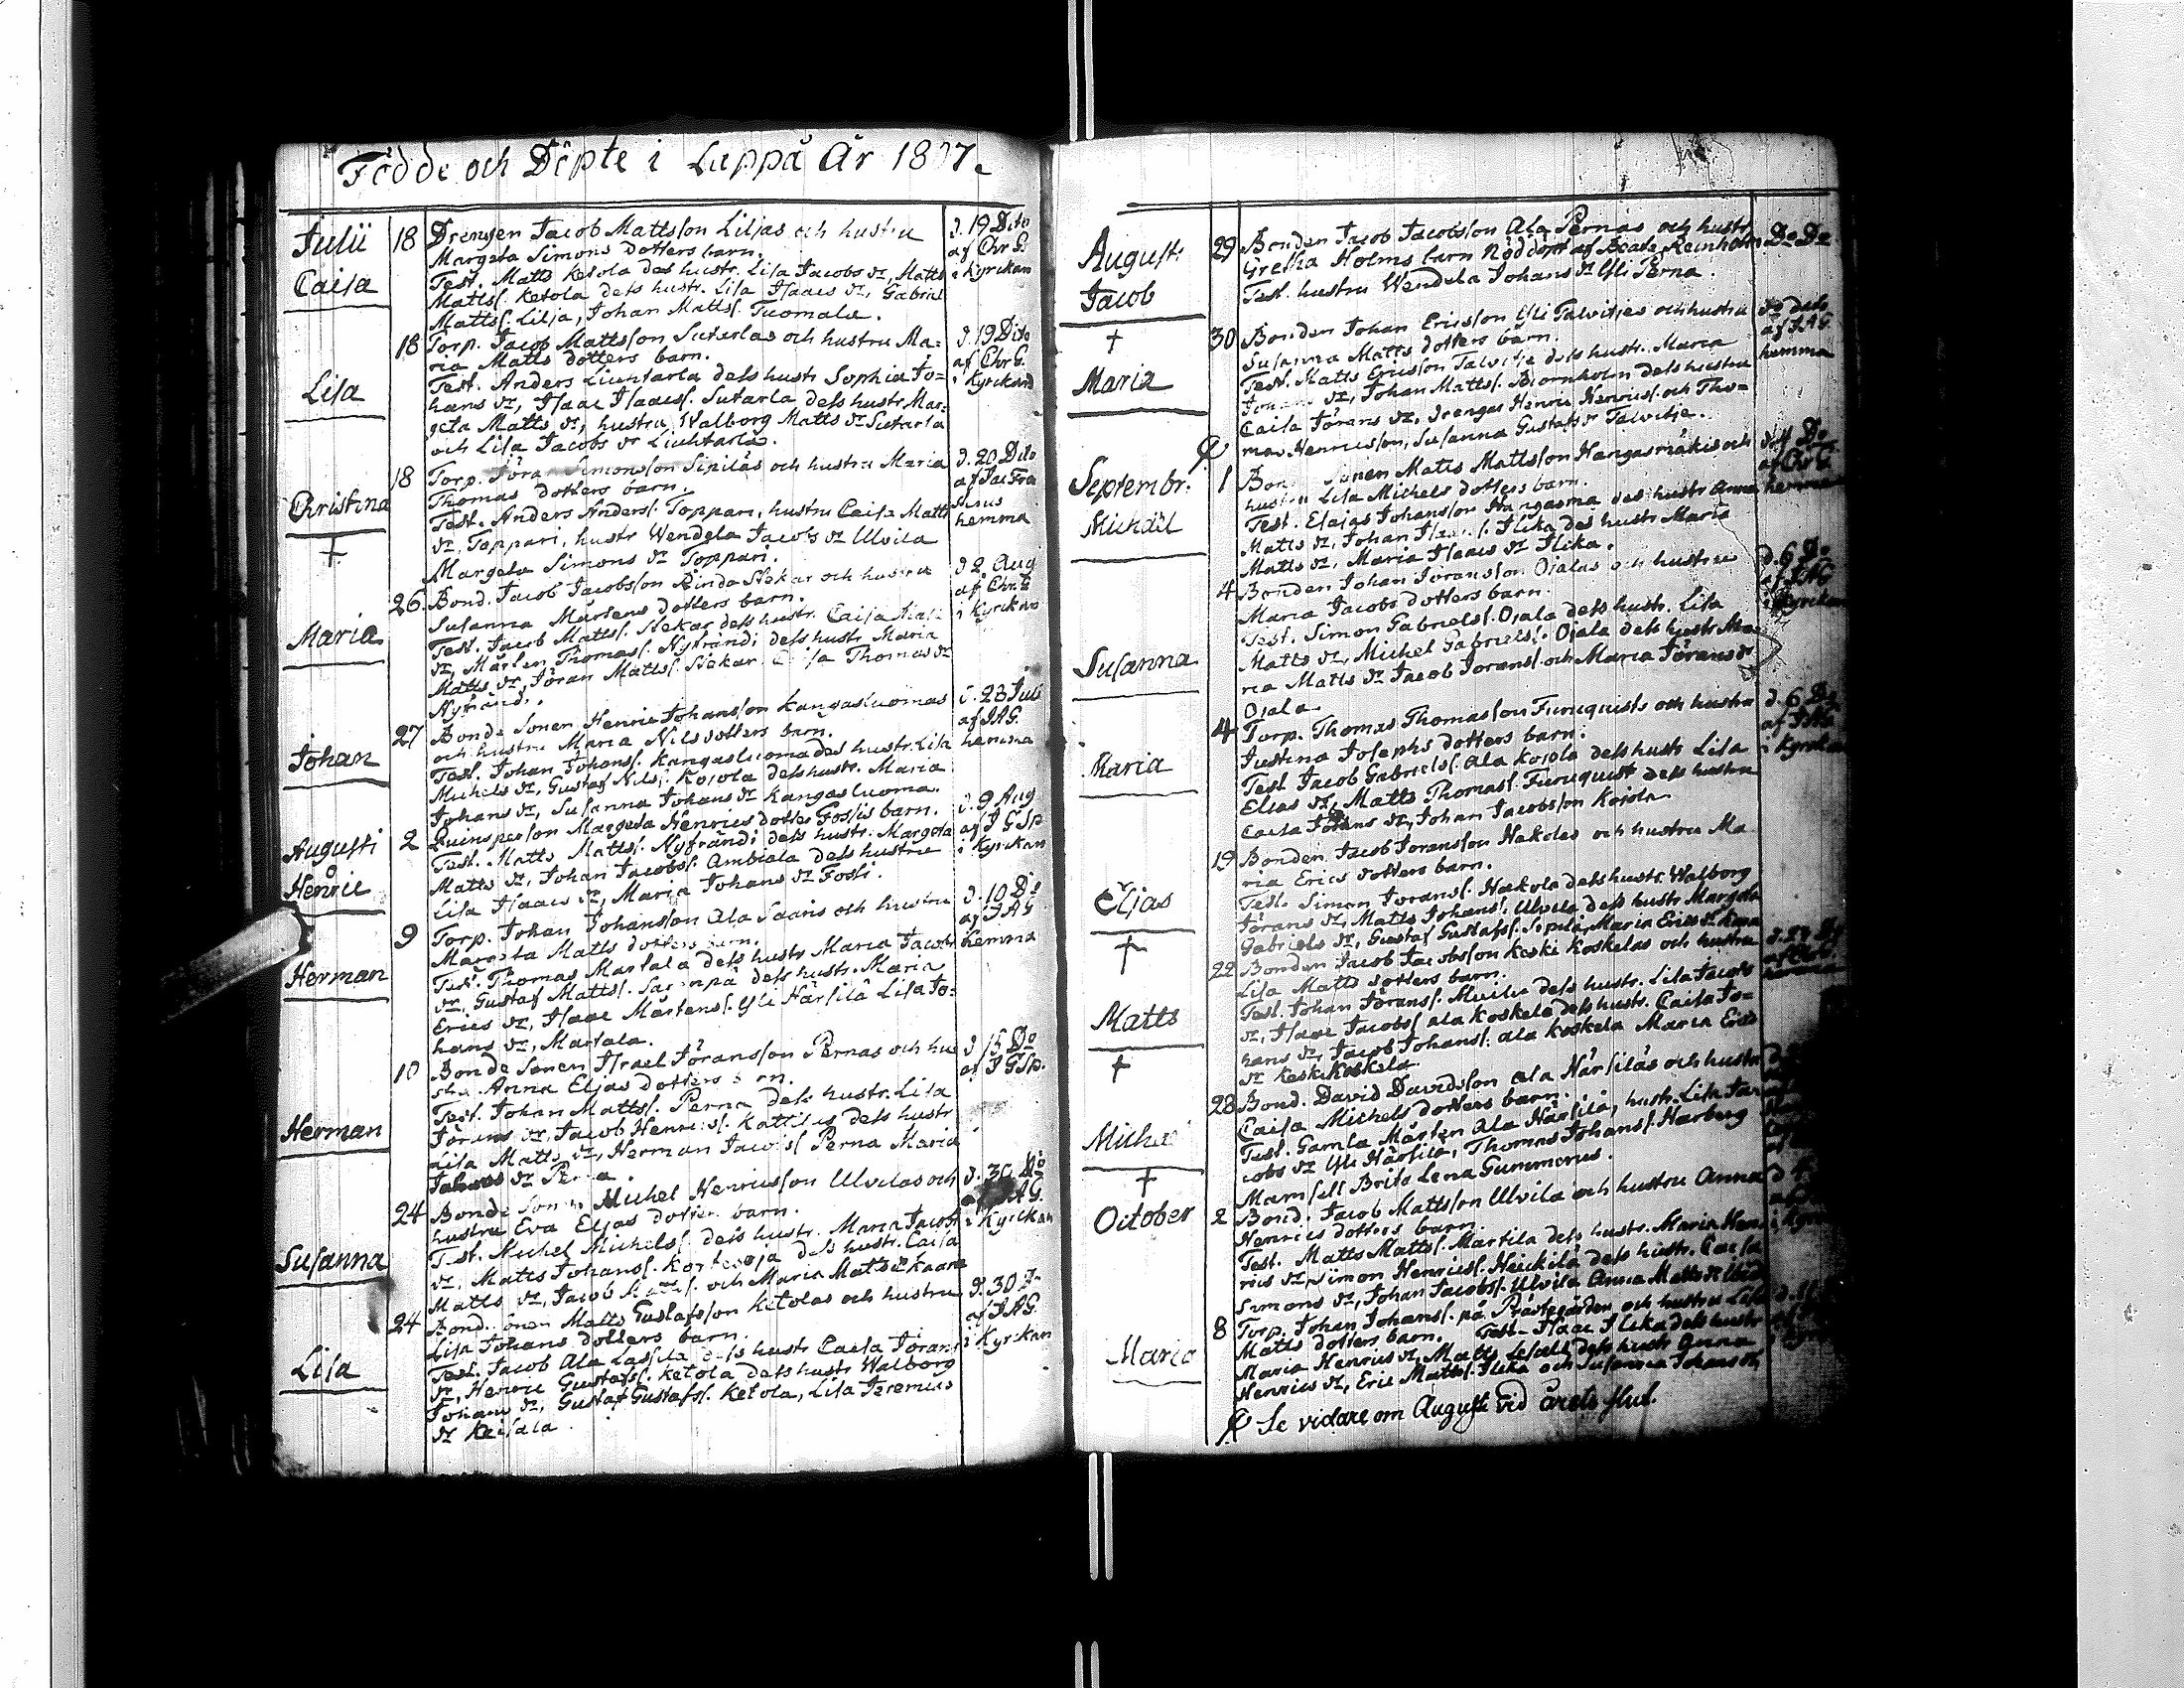 Födde och Döpte i Lappå År 1807.
Julii 18 Drengen Jacob Mattsson Liljas och hustru d. 19 Dito
Margeta Simons Dotters barn. af Chr G.
Caisa Test. Matts Ketola dess hustr. Lisa Jacobs dr, Matts i Kyrckan
Mattss. Ketola dess hustr. Lisa Isaacs dr, Gabriel
Mattss. Lilja, Johan Mattss. Tuomala.
18 Torp. Jacob Mattsson Sutarlas och hustru Ma= d. 19 Dito
ria Matts dotters barn. af Chr G.
Lisa Test. Anders Liuhtarla dess hustr Sophia Jo= i Kyrckan
hans dr, Isaac Isaacs. Sutarla dess hustr Mar=
geta Matts dr, hustru Walborg Matts dr Sutarla
och Lisa Jacobs dr Liuhtarla.
18 Torp. Jöran Simonsson Sipiläs och hustru Maria d. 20 Dito
Christina Thomas dotters barn. af Jac Fra
Test. Anders Anderss. Toppari, hustru Caisa Matts
+ dr, Toppari, hustr Wendela Jacobs dr Ulvila hemma
Margeta Simons dr Toppari.
26. Bond. Jacob Jacobsson Rinda Stekar och hustru d 2 Aug
Susanna Mårtens dotters barn. af Chr. G
Maria Test. Jacob Mattss. Stekar dess hustr. Caisa i Kyrckan
dr, Mårten Thomass. Nyfrändi dess hustr Maria
Matts dr, Jöran Mattss. Stekar Caisa Thomas dr
Nyfrändi.
27 Bonde Sonen Henric Johansson Kangasluomas d. 28 Julii
och hustru Maria Nils dotters barn. af J A G.
Johan Test. Johan Johanss. Kangasluoma dess hustr. Lisa hemma
Michels dr, Gustaf Nilss. Kojola dess hustr. Maria
Johans dr, Susanna Johans dr Kangasluoma.
Augusti 2 Quinsperson Margeta Henrics dotter Fossis barn. d. 9 Aug
Test. Matts Mattss. Nyfrändi dess hustr. Margeta af J G Sp
Henric Matts dr, Johan Jacobss. Ambiala dess hustru i Kyrckan
Lisa Isaacs dr, Maria Johans dr Fossi.
9 Torp. Johan Johansson Ala Saaris och hustru d. 10 Do
Margeta Matts dotters barn. af J A G
Herman Test. Thomas Marsala dess hustr Maria Jacobs hemma
dr, Gustaf Mattss. Saarenpä dess hustr. Maria
Erics dr, Isaac Mårtens. Yli Härsilä Lisa Jo=
hans dr, Marsala.
10 Bonde Sonen Israel Jöransson Pernas och hu d 15 Do
stru Anna Eljas Dotters barn. af J G Sp.
Test. Johan Mattss. Perna dess hustr. Lisa
Herman Jörans dr, Jacob Henricss. Kattilas dess hustr
Lisa Matts dr, Herman Jacobss Perna Maria
dr Perna.
24 Bonde Sonen Michel Henricsson Ulvilas och d. 30 Do
hustru Eva Eljas dotters barn. J A G.
Test. Michel Michelss. dess hustr. Maria Jacobs i Kyrckan
Susanna dr, Matts Johanss. dess hustr. Caisa
Matts dr, Jacob Mattss. och Maria Matts dr
24 Bond. Sonen Matts Gustafsson Ketolas och hustru d. 30 Do
Lisa Johans dotters barn. af J A G.
Lisa Test. Jacob Ala Lassila dess hustr Caisa Jörans i Kyrckan
dr, Henric Gustafss. Ketola dess hustr Walborg
Johans dr, Gustaf Gustafss. Ketola, Lisa Jeremias
dr Keisala.
Augusti 29 Bonden Jacob Jacobsson Ala Pernas och hustr Do Do
Gretha Holms barn Nöddöpt af Beate Reinholm
Jacob Test. hustru Wendela Johans dr Yli Perna.
+ 30 Bonden Johan Ericsson Yli Talvitjes och hustru
Susanna Matts dotters barn. af J A G
Maria Test. Matts Ericsson Talvitje dess hustr. Maria hemma
Johans dr, Johan Mattss. Biörnholm dess hustru
Caisa Jörans dr, drengar Henric Henricss. och Tho=
mas Henricsson, Susanna Gustafs dr Talvitje.
Septembr. 1 Bonde Sonen Matts Mattsson Hangasmäkis och
hustru Lisa Michels dotters barn. af Chr G.
Michäel Test. Elajas Johansson Hangasma dess hustr Anna hemma
Matts dr, Johan Isaacs. Ilika dess hustr Maria
Matts dr, Maria Isaacs dr Ilika.
4 Bonden Johan Joransson Ojalas och hustru d. 6 Do
Maria Jacobs dotters barn. af J A G
Susanna Test. Simon Gabrielss. Ojala dess hustr. Lisa i Kyrckan
Matts dr, Michel Gabrielss. Ojala dess hustr Ma=
ria Matts dr Jacob Joranss. och Maria Jörans dr
Ojala
4 Torp. Thomas Thomasson Furuquists och hustru d. 6 Do
Justina Josephs dotters barn. af J A G
Maria Test Jacob Gabrielss. Ala Kojola dess hustr Lisa i Kyrckan
Elias dr, Matts Thomass. Furuquist dess hustru
Caisa Jörans dr, Johan Jacobsson Kojola
19 Bonden Jacob Joransson Hakolas och hustru Ma
ria Erics dotters barn.
Eljas Test. Simon Joranss. Hakola dess hustr. Walborg
Jörans dr, Matts Johanss. Ulvila dess hustr Margeta
+ Gabriels dr, Gustaf Gustafss. Sipilä, Maria Erics dr
22 Bonden Jacob Jacobsson Keski Koskelas och hustru
Lisa Matts dotters barn.
Matts Test. Johan Jöranss. dess hustr. Lisa Jacobs
dr, Isaac Jacobss ala Koskela dess hustr. Caisa Jo=
+ hans dr, Jacob Johanss. ala Koskela Maria Erics
dr Keski Koskela
28 Bond. David Davidsson ala Härsiläs och hustr
Caisa Michels dotters barn.
Michael Test. Gamla Mårten Ala Härsilä, hustr. Lisa Ja=
cobs dr Yli Härsilä, Thomas Johanss. Harberg
+ Mamsell Brita Lena Gummerus.
October 2 Bond. Jacob Mattsson Ulvila och hustru Anna
Henrics dotters barn.
Test. Matts Mattss. Martila dess hustr. Maria Hen
rics dr, Simon Henricss. Heickilä dess hustr. Caisa
Simons dr, Johan Jacobss. Ulvila Anna Matts dr
8 Torp. Johan Johanss. på Prästegården och hustru Lisa
Maria Matts dotters barn. Test. Isaac Ilika dess hustr
Maria Henrics dr, Matts dess hustr Anna
Henrics dr, Eric Mattss. Ilika och Susanna Johans dr,
Se vidare om Augusti vid årets slut.